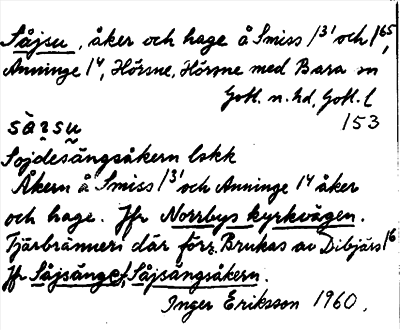 Såjsu, åker och hage å Smiss 1³¹ och 1⁶⁵,
Anninge 1⁴, Hörsne, Hörsne med Bara sn
Gotl. n. hd, Gotl. l
153
sàɪsu
Sojdesängsåkern lskk
Åkern å Smiss 1³¹ och Anninge 1⁴ åker
och hage. Jfr Norrbys kyrkvägen.
Tjärbränneri där förr. Brukas av Dibjärs 1⁶
Jfr Såjsänge, Såjsängsåkern.
Inger Eriksson 1960.